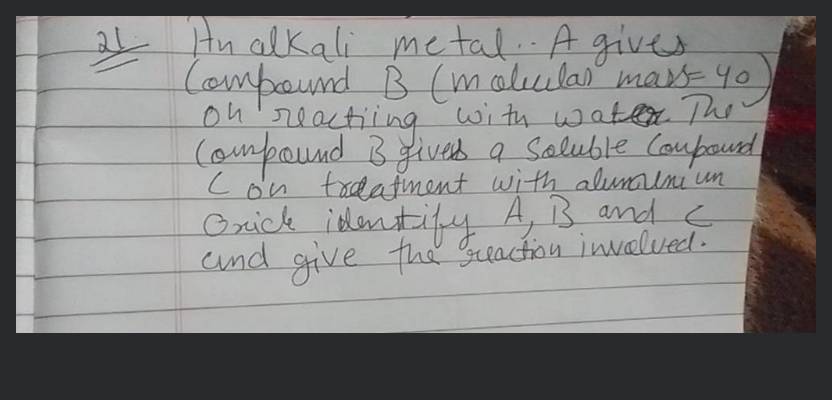 21 An alkali metal.. A gives
Compound B (molecular mass = 40)
on reactiing with water The
Compound B gives a Soluble Compound
C on treatment with aluminium
Oxide identify A, B and C
and give the reaction involved.